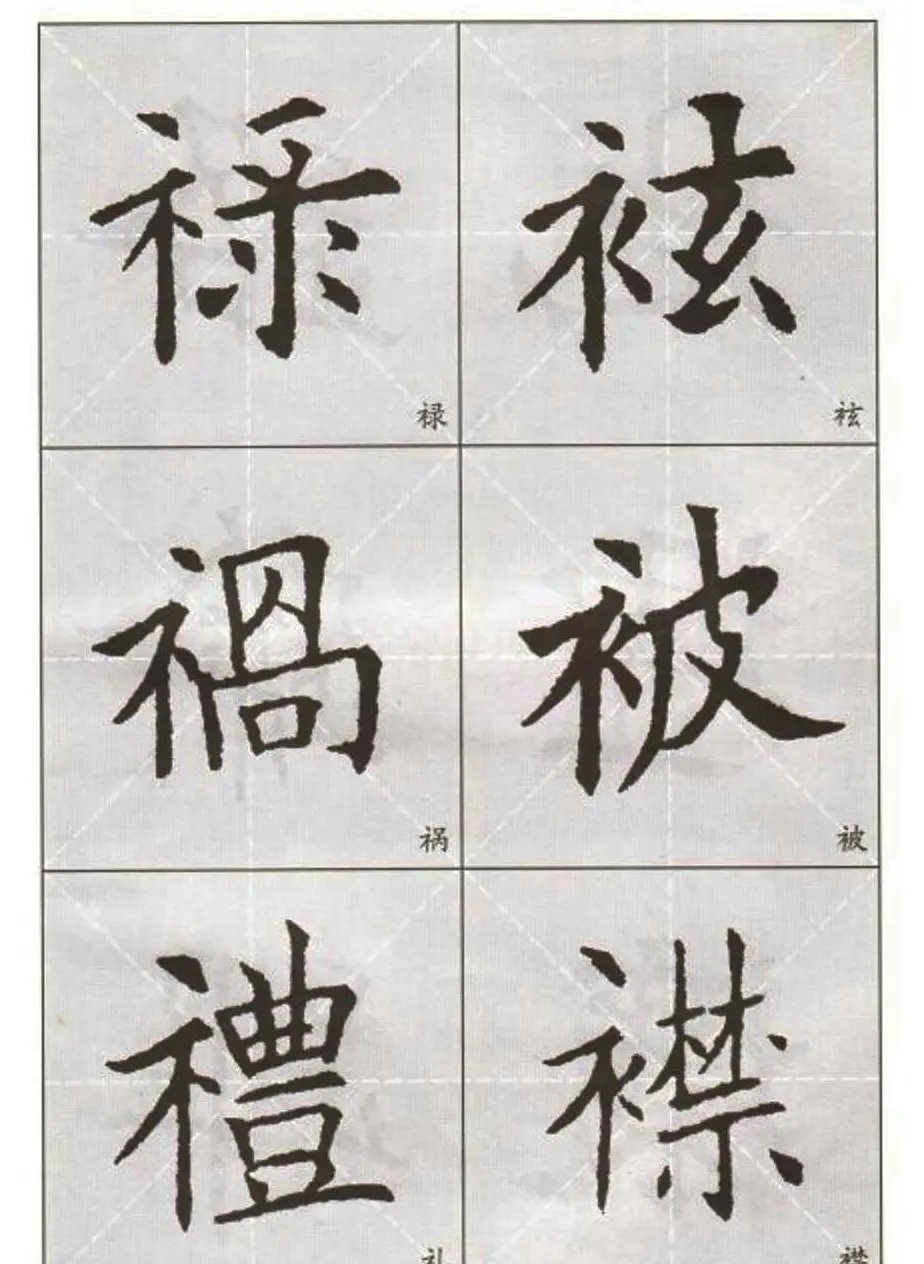 禄 袨
禄 袨
禍 被
祸 被
禮 襟
礼 襟